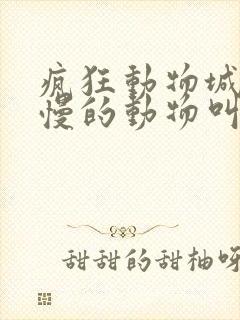 瘋狂動物城
慢的動物叫
甜甜的甜柚呀